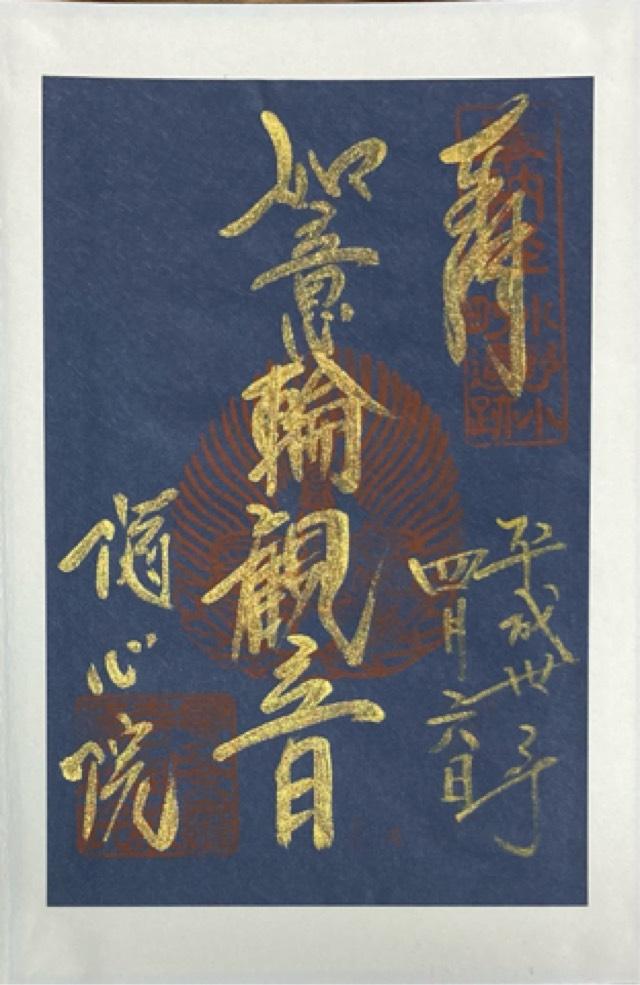 奉拝
小野小
町遺跡
平成卅年
四月六日
如意輪観音
随心院